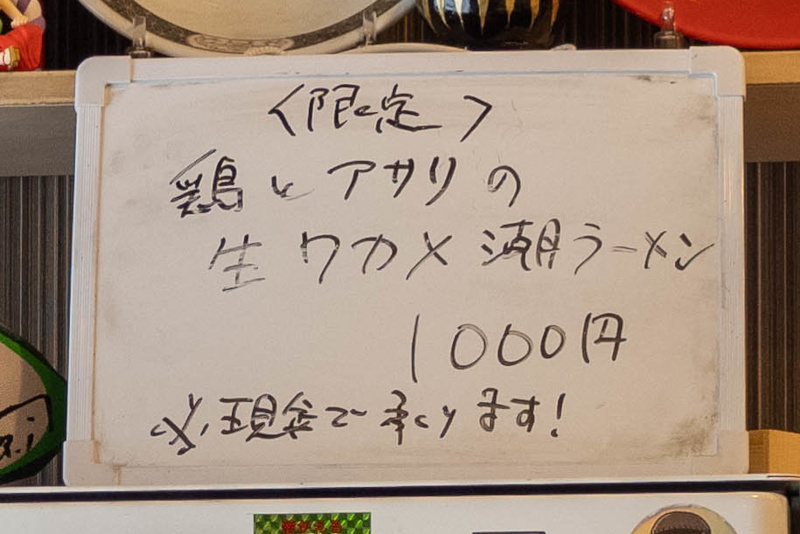 〈限定〉
鶏とアサリの
生ワカメ潮ラーメン
1000円
※現金で承ります!